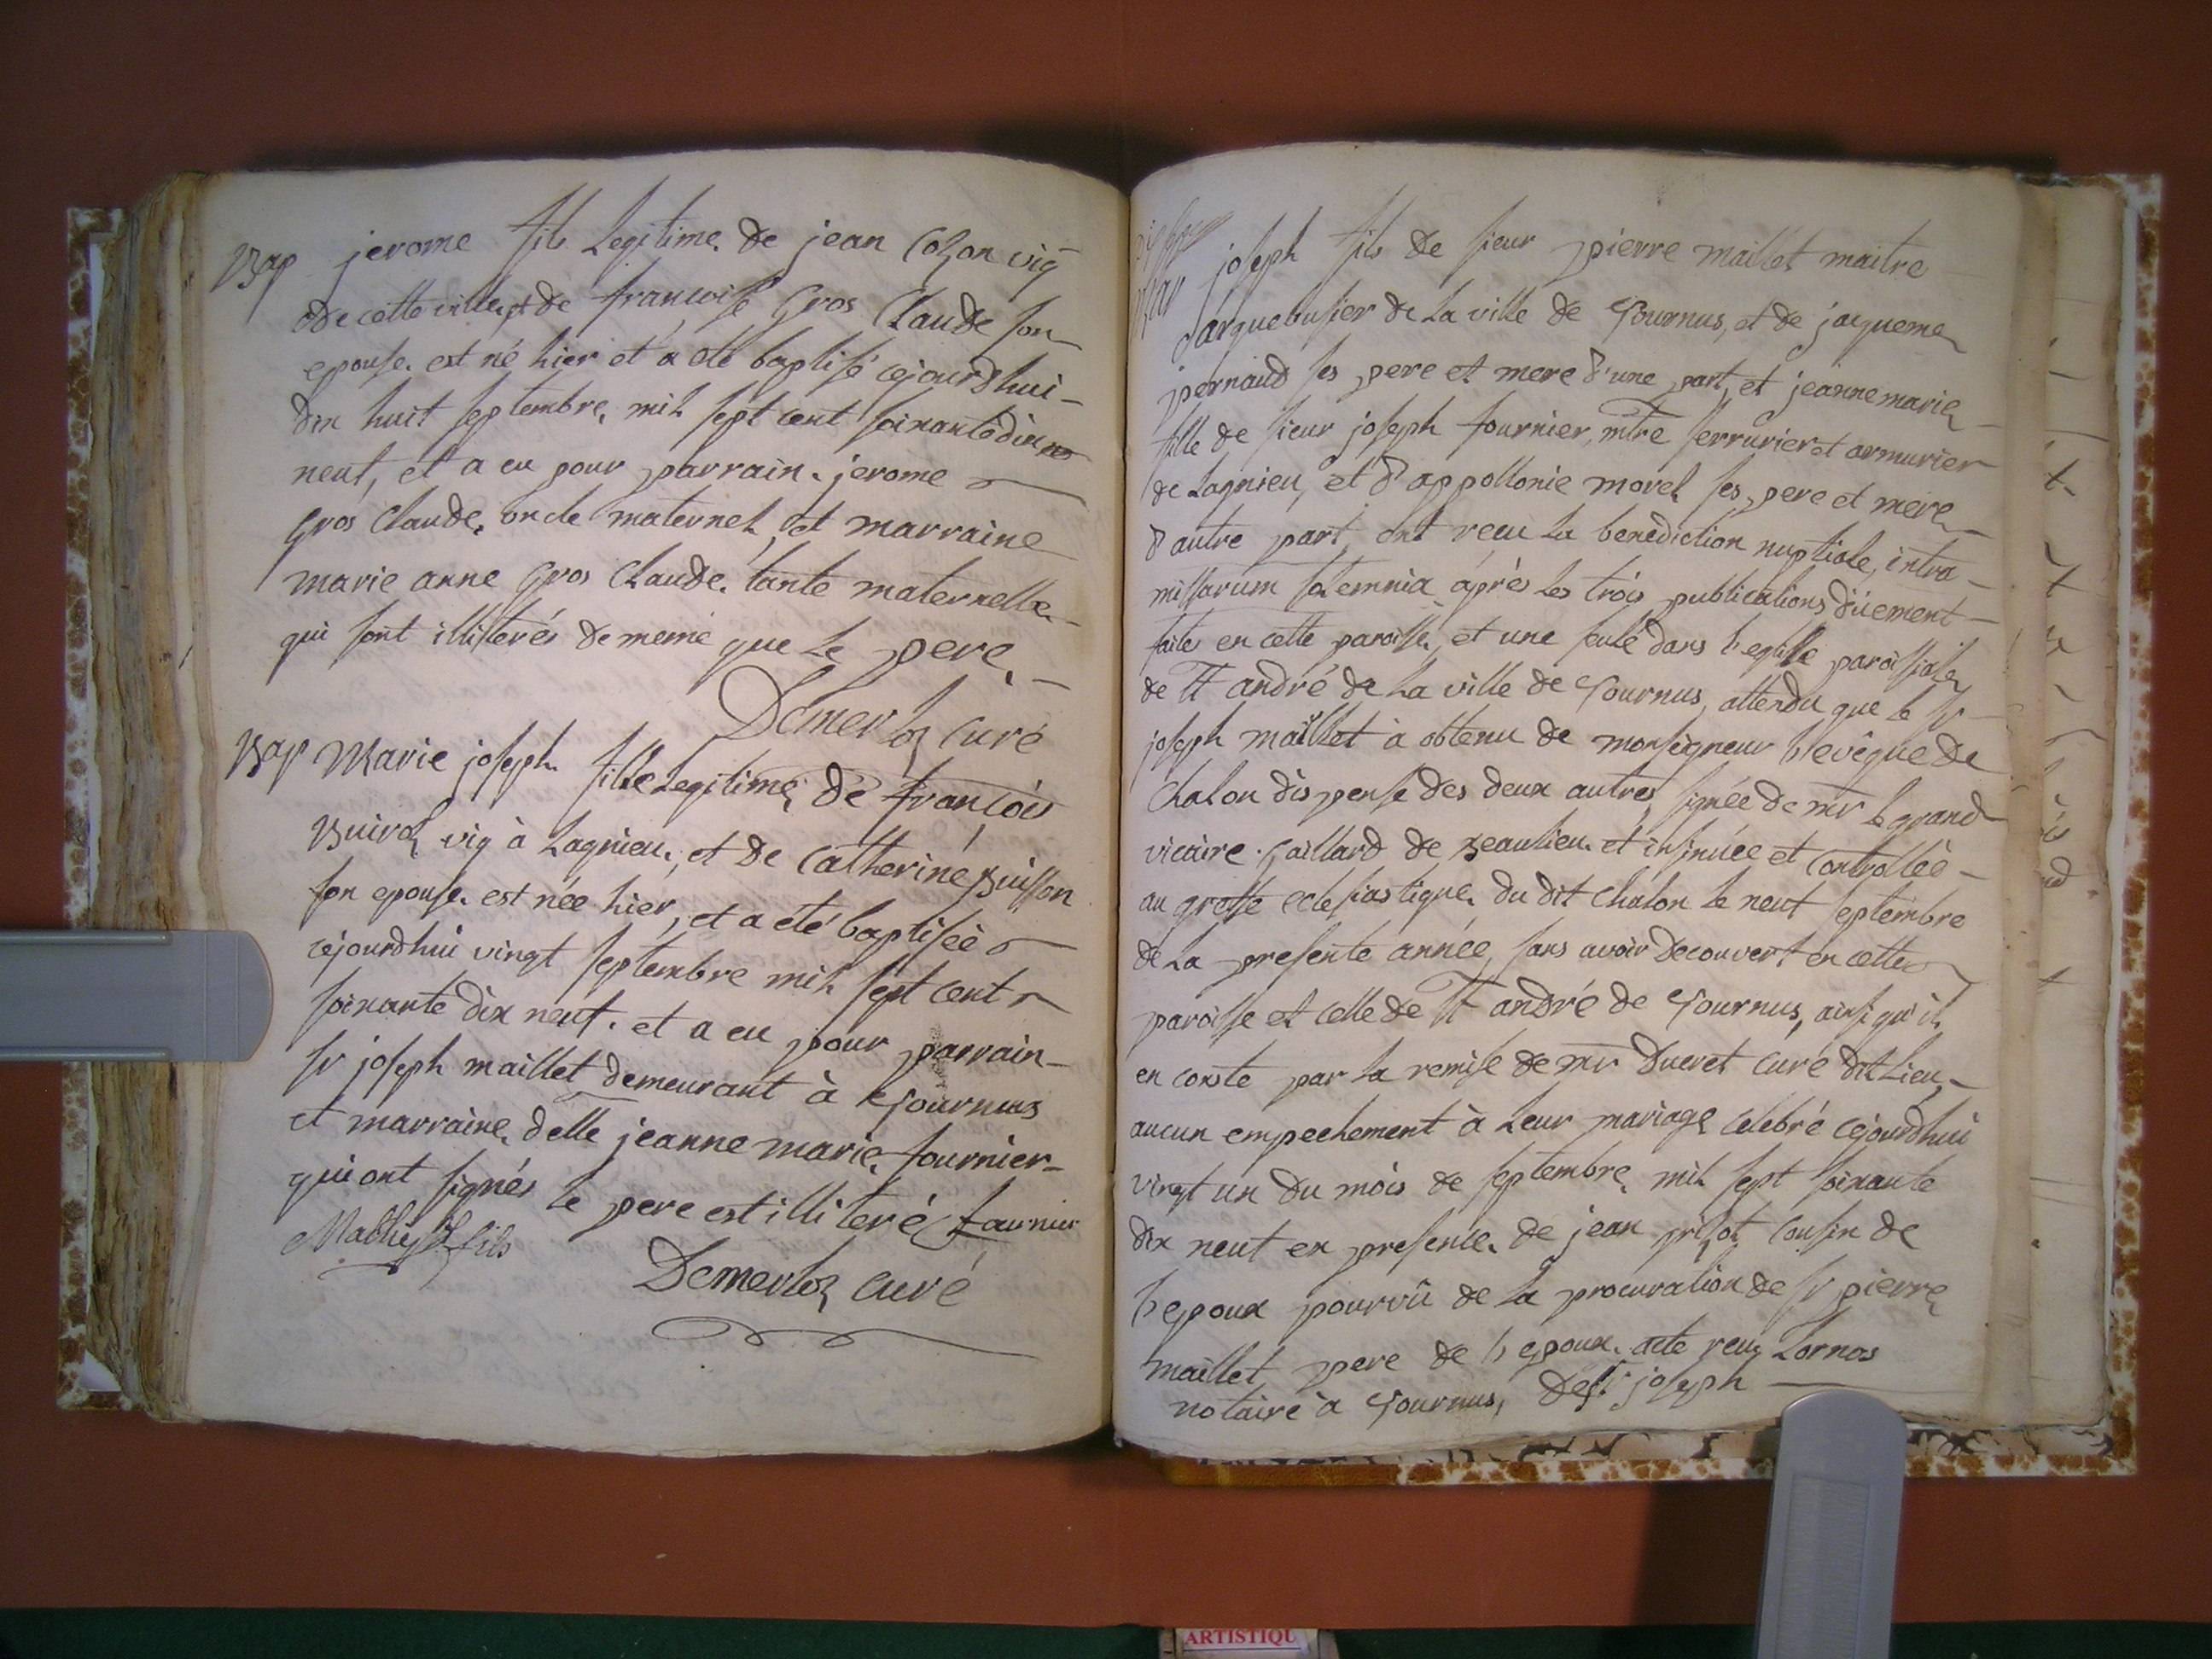 Bap jerome fils Legitime de jean Cozon vig
de cette ville, et de francoise Gros Claude son
epouse est né hier et a été baptisé cejourdhui
dix huit septembre mil sept cent soixante dix
neuf, et a eu pour parrain jerome
Gros Claude oncle maternel, et marraine
marie anne Gros Claude tante maternelle
qui sont illiterés de meme que le pere
Demerloz curé
Bap Marie joseph fille Legitime de françois
vig à Lagnieu, et de Catherine Buisson
son epouse est née hier, et a été baptisée
cejourdhui vingt septembre mil sept cent
soixante dix neuf. et a eu pour parrain
sr joseph maillet demeurant à Tournus
et marraine delle jeanne marie fournier
qui ont signés le pere est illiteré
fils
Demerloz curé
joseph fils de sieur pierre maillet maitre
arquebusier de La ville de Tournus, et de jaqueme
pernaud ses pere et mere d'une part, et jeanne marie
fille de sieur joseph fournier, mtre serrurier et armurier
de Lagnieu, et d'appollonie morel ses pere et mere
d'autre part, ont reçu La benediction nuptiale, intra
missarum solemnia après Les trois publications düement
faites en cette paroisse, et une seule dans l'eglise paroissiale
de St andré de La ville de Tournus, attendu que le sr
joseph maillet à obtenu de monseigneur l'evêque de
Chalon dispense des deux autres, signée de mr le grand
vicaire Gaillard de Beaulieu et insinuée et Controllée
au greffe eclesiastique du dit Chalon le neuf septembre
de La presente année, sans avoir decouvert en cette
paroisse et celle de St andré de Tournus, ainsi qu'il
en conste par La remise de mr Ducret curé dit Lieu,
aucun empechement à Leur mariage celebré cejourdhui
vingt un du mois de septembre mil sept soixante
dix neuf en presence de jean cousin de
l'epoux pourvû de La procuration de sr pierre
maillet pere de l'epoux acte reçu Lornas
notaire à Tournus, joseph